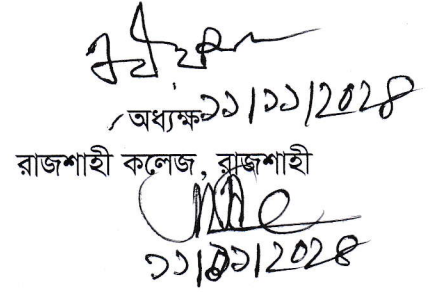 অধ্যক্ষ ১১/১১/২০২৪
রাজশাহী কলেজ, রাজশাহী
১১/১১/২০২৪